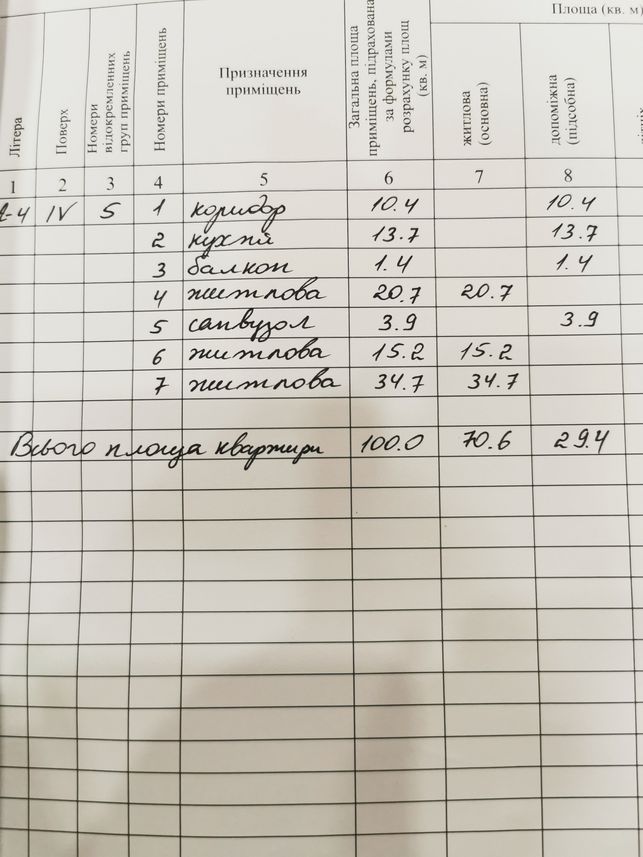 Площа (кв. м)
Літера
Поверх
Номери відокремленних груп приміщень
Номери приміщень
Призначення приміщень
Загальна площа приміщень, підрахована за формулами розрахунку площ (кв. м)
житлова (основна)
допоміжна (підсобна)
1 2 3 4 5 6 7 8
А-4 IV 5 1 коридор 10.4 10.4
2 кухня 13.7 13.7
3 балкон 1.4 1.4
4 житлова 20.7 20.7
5 санвузол 3.9 3.9
6 житлова 15.2 15.2
7 житлова 34.7 34.7
Всього площа квартири 100.0 70.6 29.4